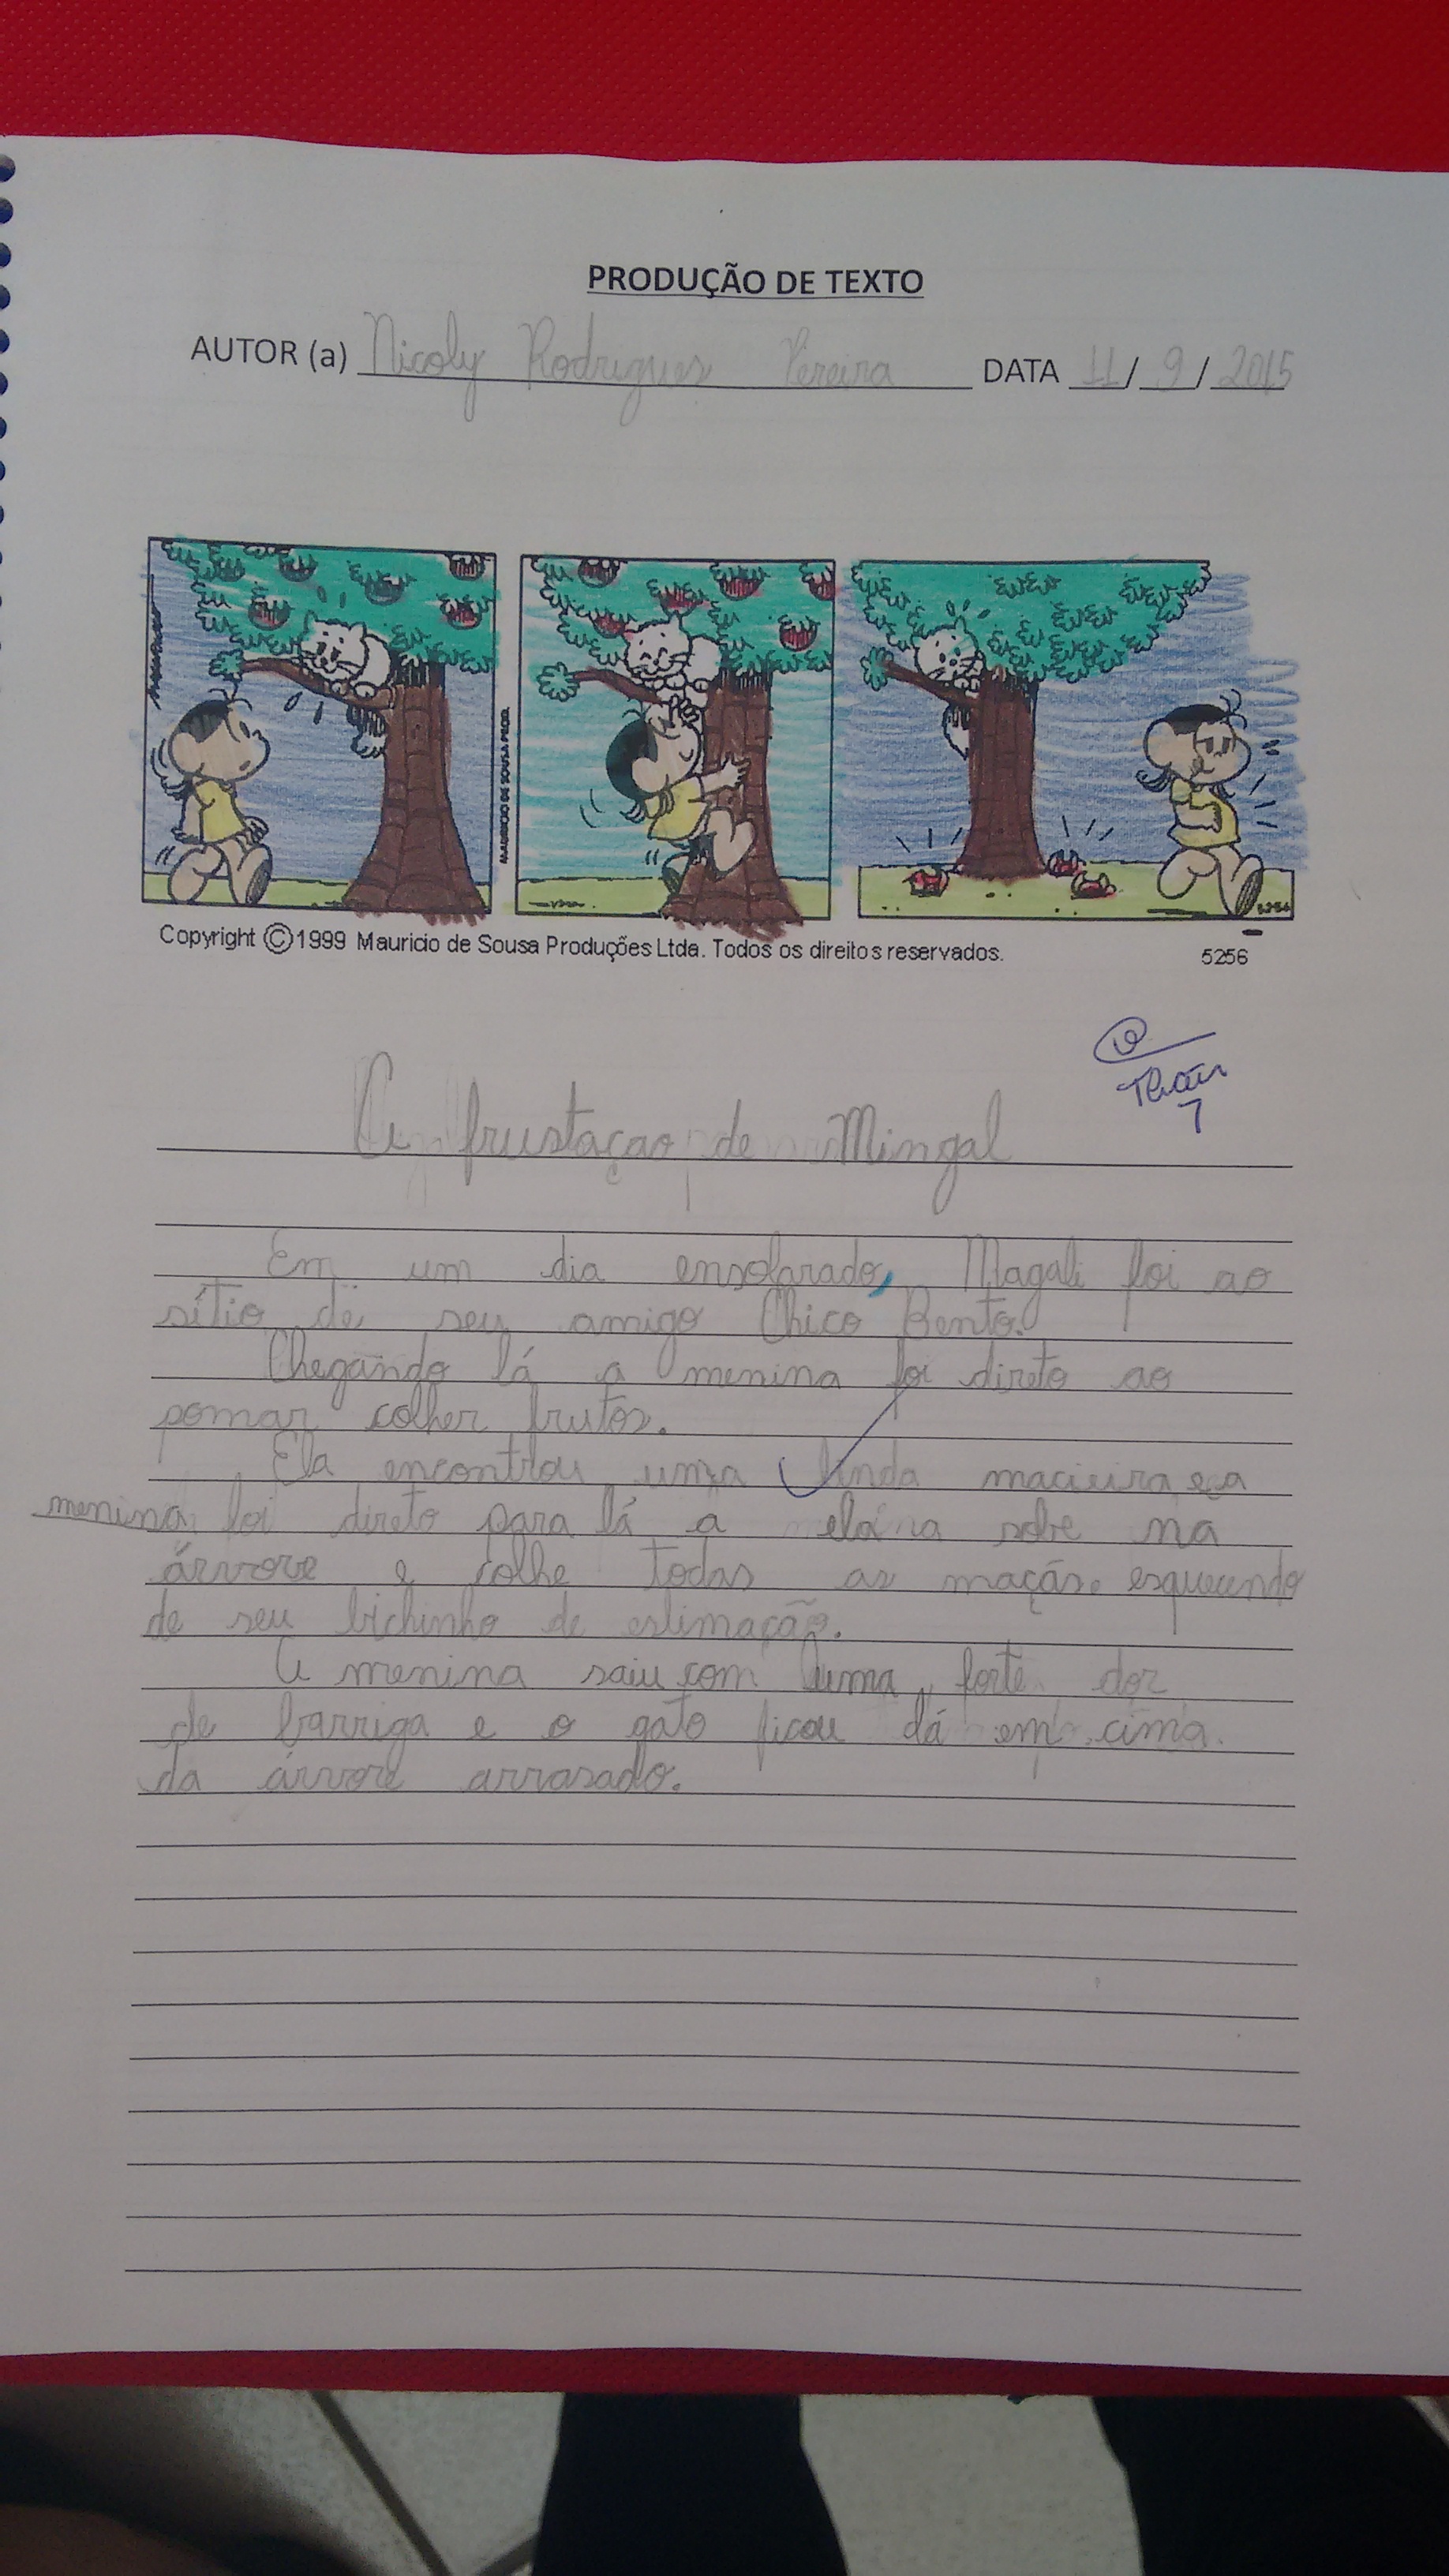 PRODUÇÃO DE TEXTO
AUTOR (a) Nicoly Rodrigues Pereira DATA 11/9/2015
MAURICIO DE SOUSA PROD.
Copyright ©1999 Mauricio de Sousa Produções Ltda. Todos os direitos reservados. 5256
A frustaçao de Mingal
Em um dia ensolarado, Magali foi ao
sítio de seu amigo Chico Bento.
Chegando lá a menina foi direto ao
pomar colher frutos.
Ela encontrou uma linda macieira e a
menina foi direto para lá a ela sobe na
árvore e colhe todas as maçãs. esquecendo
de seu bichinho de estimação.
A menina saiu com uma forte dor
de barriga e o gato ficou lá em cima
da árvore arrasado.